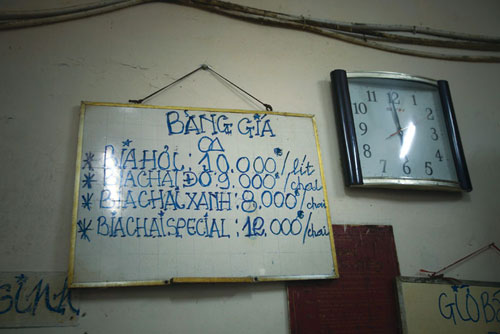 BẢNG GIÁ
* BIA HƠI: 10.000đ/lít
* BIA CHAI ĐỎ: 9.000đ/chai
* BIA CHAI XANH: 8.000đ/chai
* BIA CHAI SPECIAL: 12.000đ/chai
12
1
2
3
4
5
6
7
8
9
10
11